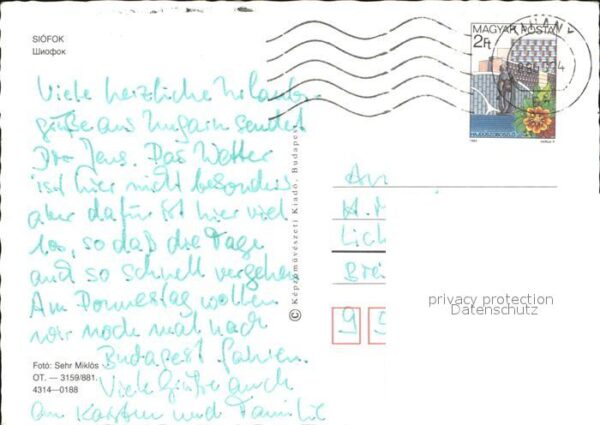 SIÓFOK
Шиофок
MAGYAR POSTA
2Ft
Viele herzliche Urlaubs-
grüße aus Ungarn sendet
Dir Jens. Das Wetter
ist hier nicht besonders
aber dafür ist hier viel
los, so daß die Tage
auch so schnell vergehen
Am Donnerstag wollen
wir noch mal nach
Budapest fahren.
Viele Grüße auch
an Karsten und Familie
© Képzőművészeti Kiadó, Budapest
An
H.
Lich
Bre
9 9
privacy protection
Datenschutz
Fotó: Sehr Miklós
OT. — 3159/881.
4314—0188